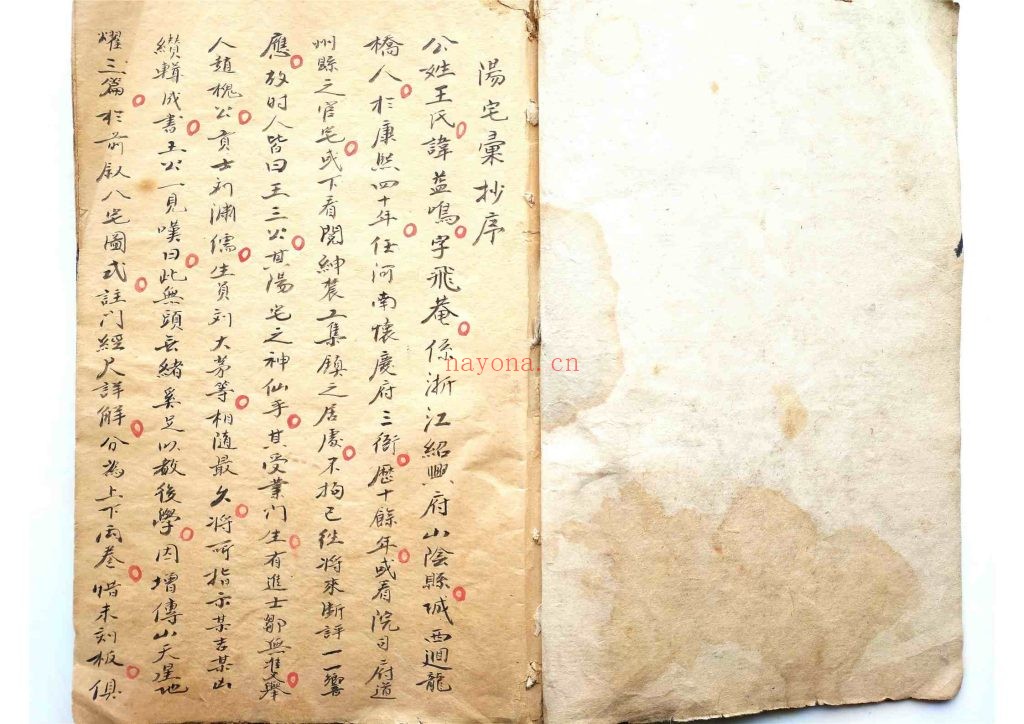 湯宅彙抄序
公姓王氏諱益鳴字飛菴係浙江紹興府山陰縣城西迴龍
橋人於康熙四十年任河南懷慶府三衙歷十餘年或看院司府道
州縣之官宅或下看閱紳農工集鎮之居處不拘已徃將來斷評一一響
應故时人皆曰王三公其湯宅之神仙乎其受業门生有進士鄒無擧
人趙槐公貢士刘沛儒生員刘大茅等相随最久将所指示某吉某凶
纘輯成書王公一見嘆曰此無頭無緒奚足以教後學因增傳山天星地
燿三篇於前叙八宅圖式註门經尺詳解分為上下両卷惜未刻板俱
nayona.cn